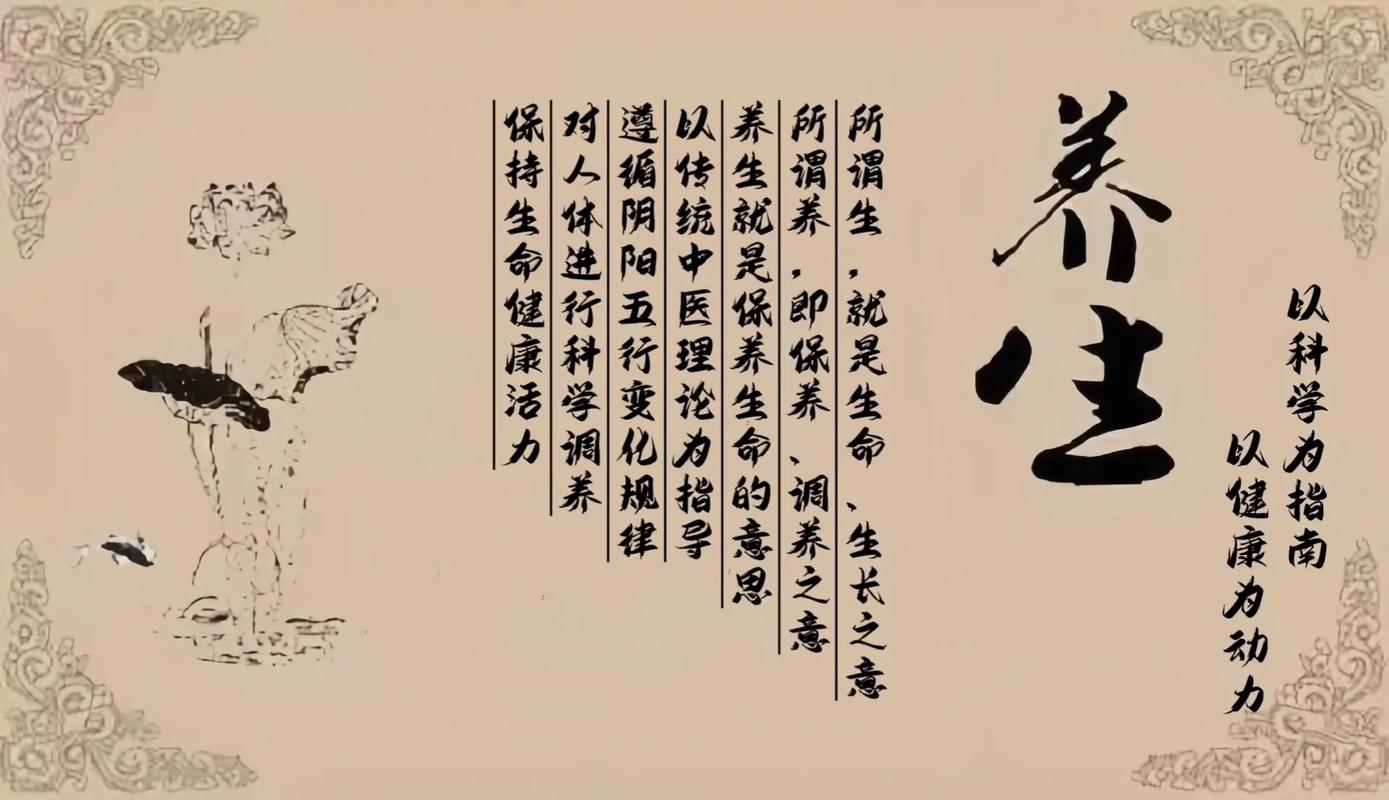 以科学为指南
以健康为动力
养生
所谓生，就是生命、生长之意
所谓养，即保养、调养之意
养生就是保养生命的意思
以传统中医理论为指导
遵循阴阳五行变化规律
对人体进行科学调养
保持生命健康活力